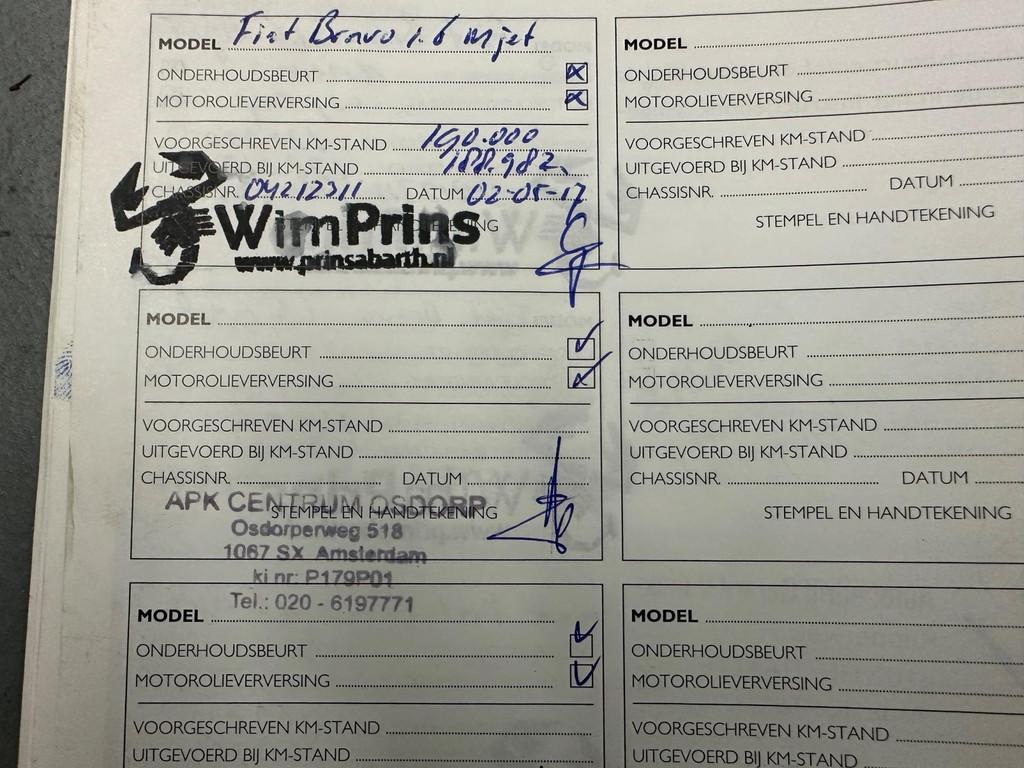 MODEL Fiat Bravo 1.6 mjet
ONDERHOUDSBEURT
MOTOROLIEVERVERSING
VOORGESCHREVEN KM-STAND 190.000
UITGEVOERD BIJ KM-STAND 188.982
CHASSISNR. 04212311 DATUM 02-05-17
STEMPEL EN HANDTEKENING
WimPrins
www.prinsabarth.nl
MODEL
ONDERHOUDSBEURT
MOTOROLIEVERVERSING
VOORGESCHREVEN KM-STAND
UITGEVOERD BIJ KM-STAND
CHASSISNR. DATUM
STEMPEL EN HANDTEKENING
MODEL
ONDERHOUDSBEURT
MOTOROLIEVERVERSING
VOORGESCHREVEN KM-STAND
UITGEVOERD BIJ KM-STAND
CHASSISNR. DATUM
STEMPEL EN HANDTEKENING
APK CENTRUM OSDORP
Osdorperweg 518
1067 SX Amsterdam
ki nr: P179P01
Tel.: 020 - 6197771
MODEL
ONDERHOUDSBEURT
MOTOROLIEVERVERSING
VOORGESCHREVEN KM-STAND
UITGEVOERD BIJ KM-STAND
CHASSISNR. DATUM
STEMPEL EN HANDTEKENING
MODEL
ONDERHOUDSBEURT
MOTOROLIEVERVERSING
VOORGESCHREVEN KM-STAND
UITGEVOERD BIJ KM-STAND
MODEL
ONDERHOUDSBEURT
MOTOROLIEVERVERSING
VOORGESCHREVEN KM-STAND
UITGEVOERD BIJ KM-STAND